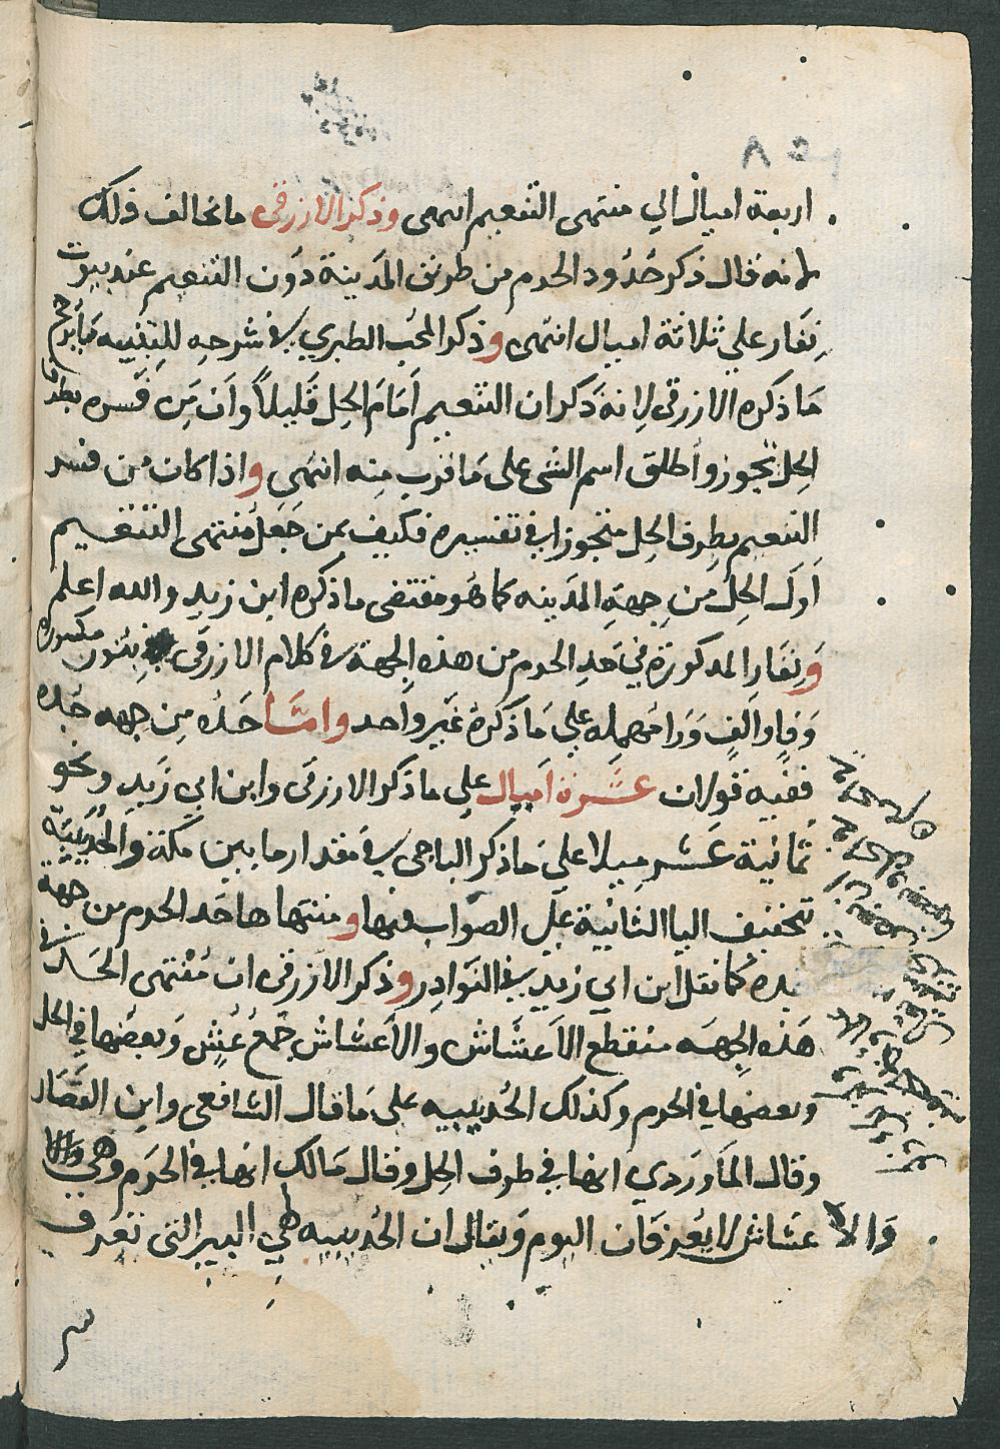 اربعة اميال الي منتهى التنعيم انتهى وذكر الازرقي ما يخالف ذلك
لانه قال ذكر حُدُود الحرم من طريق المَدينة دُون التنعيم عند بيوت
نِفَار علي ثلاثة اميال انتهى وذكر المحُب الطبري في شرحه للتنبيه
مَا ذكره الازرقي لِانه ذكر ان التنعيم اَمَامَ الحِل قَليلاً وان مَن فَسره بطرف
الحِل تجوز واَطلق اسم الشى على مَا قرب مِنه انتهى واذا كان من فسر
التنعيم بطِرف الحِل متجوزا في تفسيره فكيف بمن جَعَل مُنتهى التنعيم
اَوَل الحِل من جِهةِ المَدينه كما هُو مقتضى ما ذكره ابن زيد والله اعلم
وَنِفَار المذكورة في حَدِ الحرم من هذه الجهة في كلام الازرقي بِنُون مكسوره
وَفاٍ واَلفٍ وَرَا مُهمله علي مَا ذكرهُ غير واَحد وامّا حَدُه مِن جِهه جُده
ففيه قولان عشرة اَميال علي ما ذكر الازرقي وابن ابي زَيدٍ ونحو
ثمانية عَشر مِيلا علي مَا ذكر الباجي في مقدار ما بين مكة والحُدَيبيَة
بتخفيف اليا الثانية علي الصَواب فيها ومنتهاها حَد الحرم من جهة
جده كما نقل ابن ابي زيدٍ في النوادِر وذكر الازرقي ان مُنتهى الحَد في
هَذه الجِهَه منقطع الاَعشَاش والاَعشاش جَمعُ عُشٍ وَبعضها في الحل
وبعضها في الحرم وكذلك الحُديبيه علي مَا قال الشافعي وابن القصار
وقال المَاوردي انها في طرف الحِل وقال مَالك انها في الحَرم وهي
وَالاَعشاش لا يُعرفَان اليوم وَيقال ان الحُديبيه هي البير التي تعرف